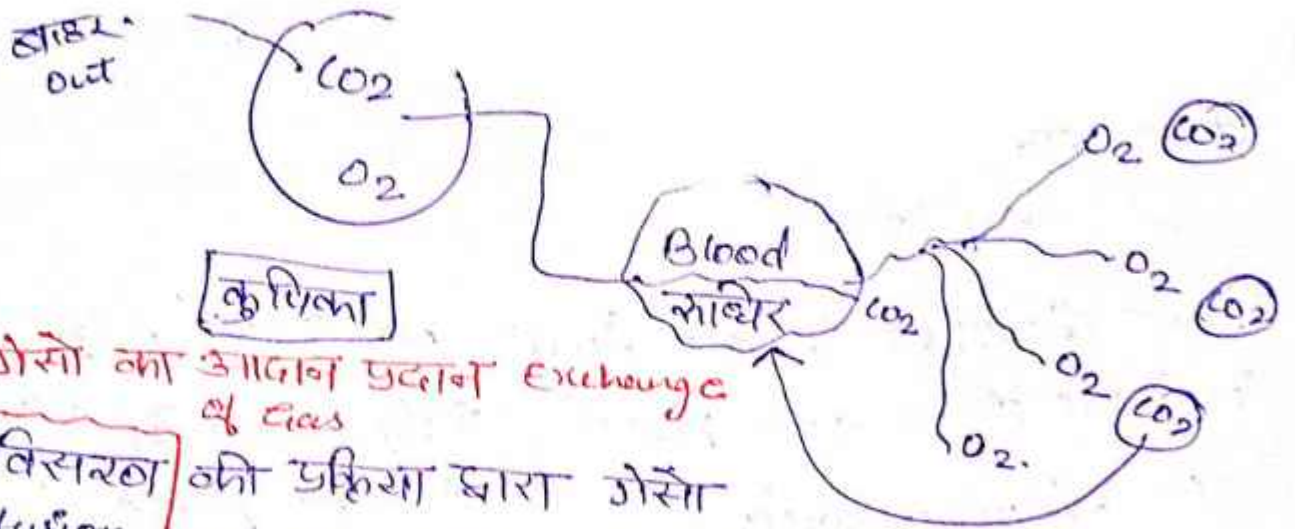 बाहर
out
CO2
O2
कुपिका
Blood
रूधिर
CO2
O2 CO2
O2 CO2
O2 CO2
O2.
गेसो का आदान प्रदान Exchange
of Gas
विसरण की प्रक्रिया द्वारा गेसो